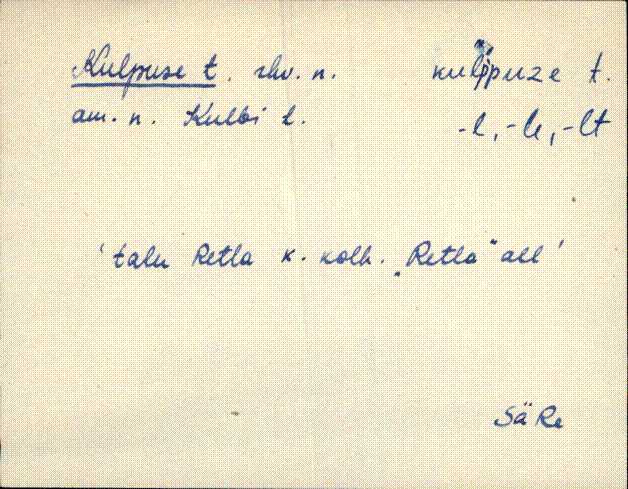 Kulpuse t. rhv. n. kulppuze t.
am. n. Kulbi t. -l, -le, -lt
'talu Retla k. kolh. „Retla" all'
SäRe